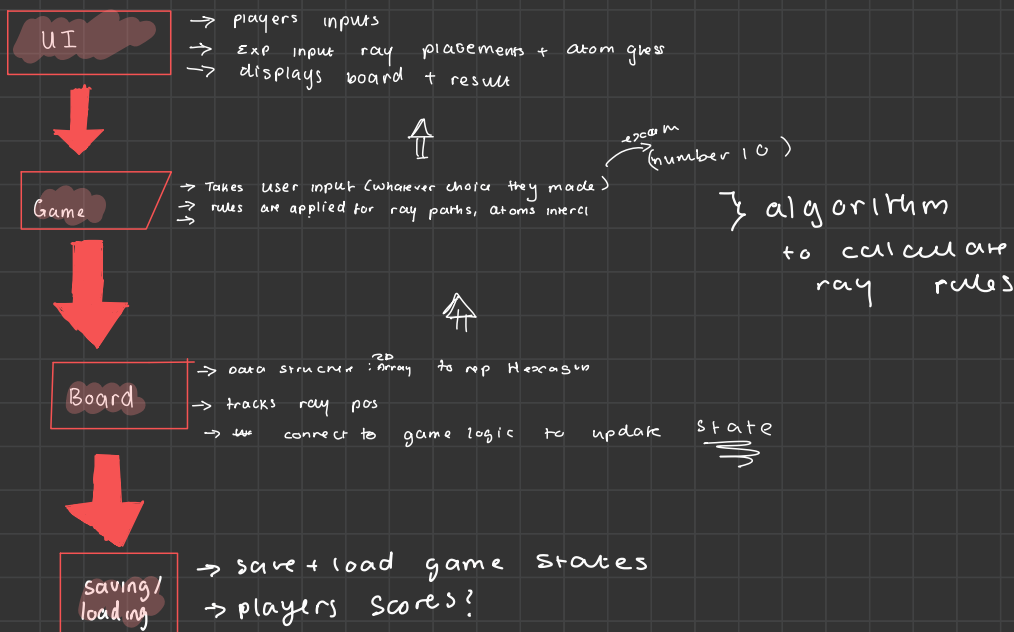 UI
→ players inputs
→ Exp input ray placements + atom guess
→ displays board + result
Game
→ Takes user input (whatever choice they made)
(number 10)
→ rules are applied for ray paths, atoms
→
} algorithm
to calculate
ray rules
Board
→ Data structure : 2D Array to rep Hexagon
→ tracks ray pos
→ connect to game logic to update state
saving/
loading
→ save + load game states
→ players scores?